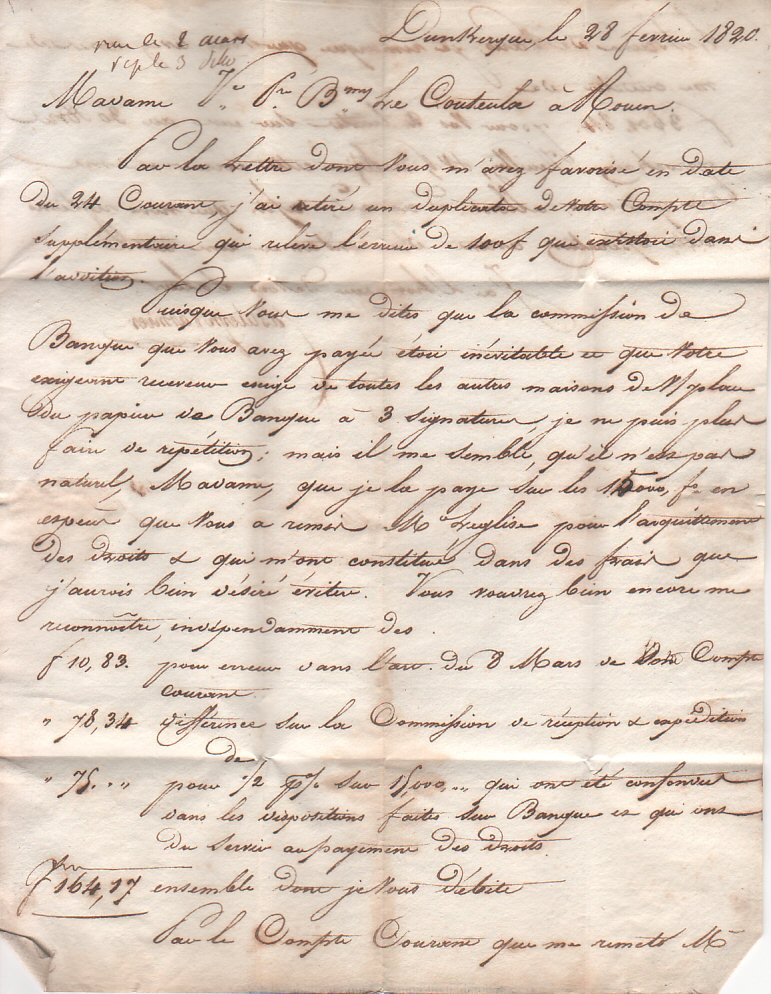 Dunkerque, le 28 février 1820.
reçu le 2 mars
rép le 3 dito
Madame Ve Pre Bmy Le Couteulx à Rouen.
Par la Lettre dont Vous m'avez favorisé en date
du 24 Courant j'ai retiré un duplicata de Votre Compte
supplémentaire qui relève l'erreur de 100f qui existoit dans
l'addition.
Puisque Vous me dites que la commission de
Banque que Vous avez payée étoit inévitable et que Votre
exigeant receveur exige de toutes les autres maisons de V/ place
du papier de Banque à 3 signatures, je ne puis plus
faire de répétition; mais il me semble, qu'il n'est pas
naturel, Madame, que je la paye sur les 15000, f. en
espèces que Vous a remis Mr Leglise pour l'acquittement
des droits & qui m'ont constitué dans des frais que
j'aurois bien désiré éviter. Vous voudrez bien encore me
reconnoître, indépendamment des
f 10,83. pour erreur dans l'art. du 8 Mars de Votre Compte
courant
" 78,34 différence sur la Commission de réception & expédition
de
" 75. " " pour 1/2 p% sur 15,000,.. qui ont été confondus
dans les dispositions faites sur Banque et qui ont
du servir au payement des droits.
f 164,17 ensemble dont je Vous débite
Par le Compte Courant que me remets Mr